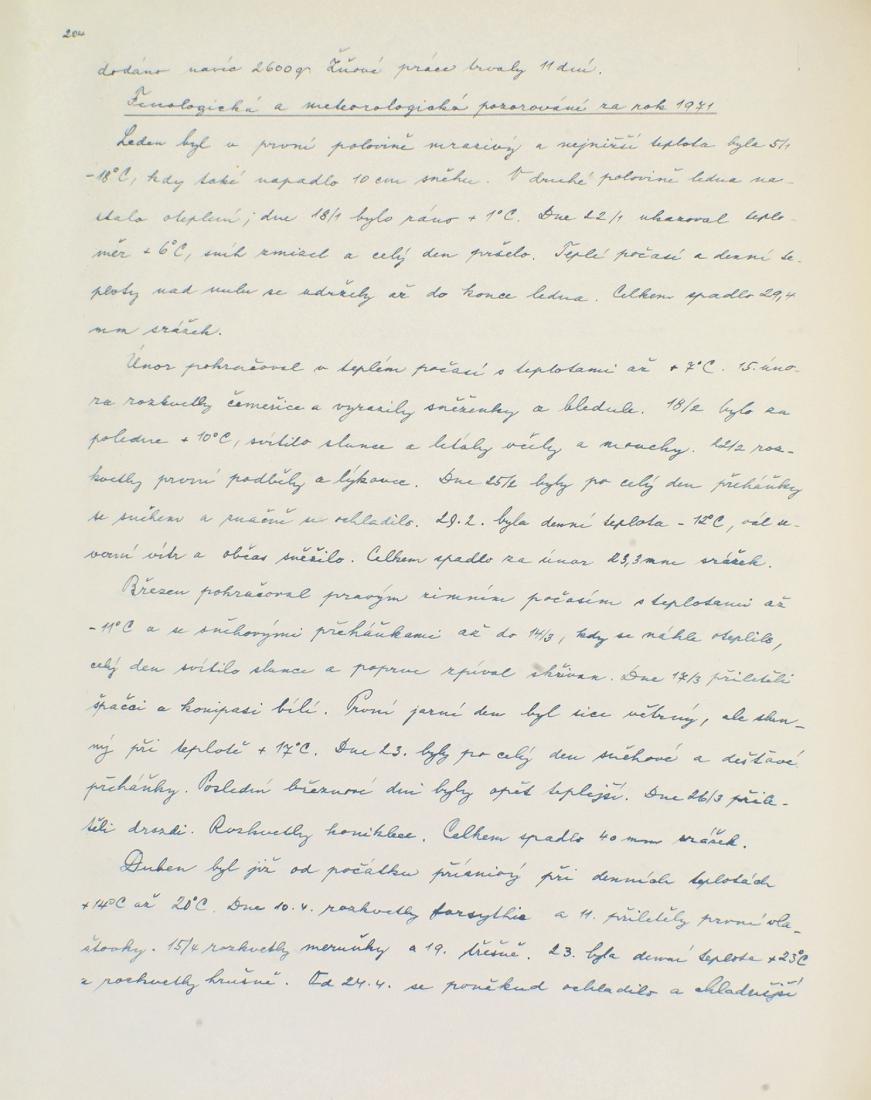 204
dodáno navíc 2600 q. Žňové práce trvaly 11 dní.
Fenologická a meteorologická pozorování za rok 1971
Leden byl v první polovině mrazivý a nejnižší teplota byla 5/1
-18°C, kdy také napadlo 10 cm sněhu. V druhé polovině ledna na-
stalo oteplení; dne 18/1 bylo ráno +1°C. Dne 22/1 ukazoval teplo-
měr +6°C, sníh zmizel a celý den pršelo. Teplé počasí a denní te-
ploty nad nulu se udržely až do konce ledna. Celkem spadlo 29,4
mm srážek.
Únor pokračoval v teplém počasí s teplotami až +7°C. 15. úno-
ra rozkvetly čemeřice a vyrazily sněženky a bledule. 18/2 bylo za
poledne +10°C, svítilo slunce a létaly včely a mouchy. 22/2 roz-
kvetly první podběly a lýkovce. Dne 25/2 byly po celý den přeháňky
se sněhem a značně se ochladilo. 29.2. byla denní teplota -12°C, vál se-
verní vítr a občas sněžilo. Celkem spadlo za únor 23,3 mm srážek.
Březen pokračoval pravým zimním počasím s teplotami až
-11°C a se sněhovými přeháňkami až do 14/3, kdy se náhle oteplilo,
celý den svítilo slunce a poprve zpíval skřivan. Dne 17/3 přiletěli
špačci a konipasi bílí. První jarní den byl sice větrný, ale slun-
ný při teplotě +17°C. Dne 23. byly po celý den sněhové a dešťové
přeháňky. Poslední březnové dni byly opět teplejší. Dne 26/3 přile-
těli drozdi. Rozkvetly koniklece. Celkem spadlo 40 mm srážek.
Duben byl již od počátku příznivý při denních teplotách
+14°C až 20°C. Dne 10.4. rozkvetly forsythie a 11. přiletěly první vla-
štovky. 15/4 rozkvetly meruňky a 19. třešně. 23. byla denní teplota +23°C
a rozkvetly hrušně. Od 24.4. se poněkud ochladilo a chladnější